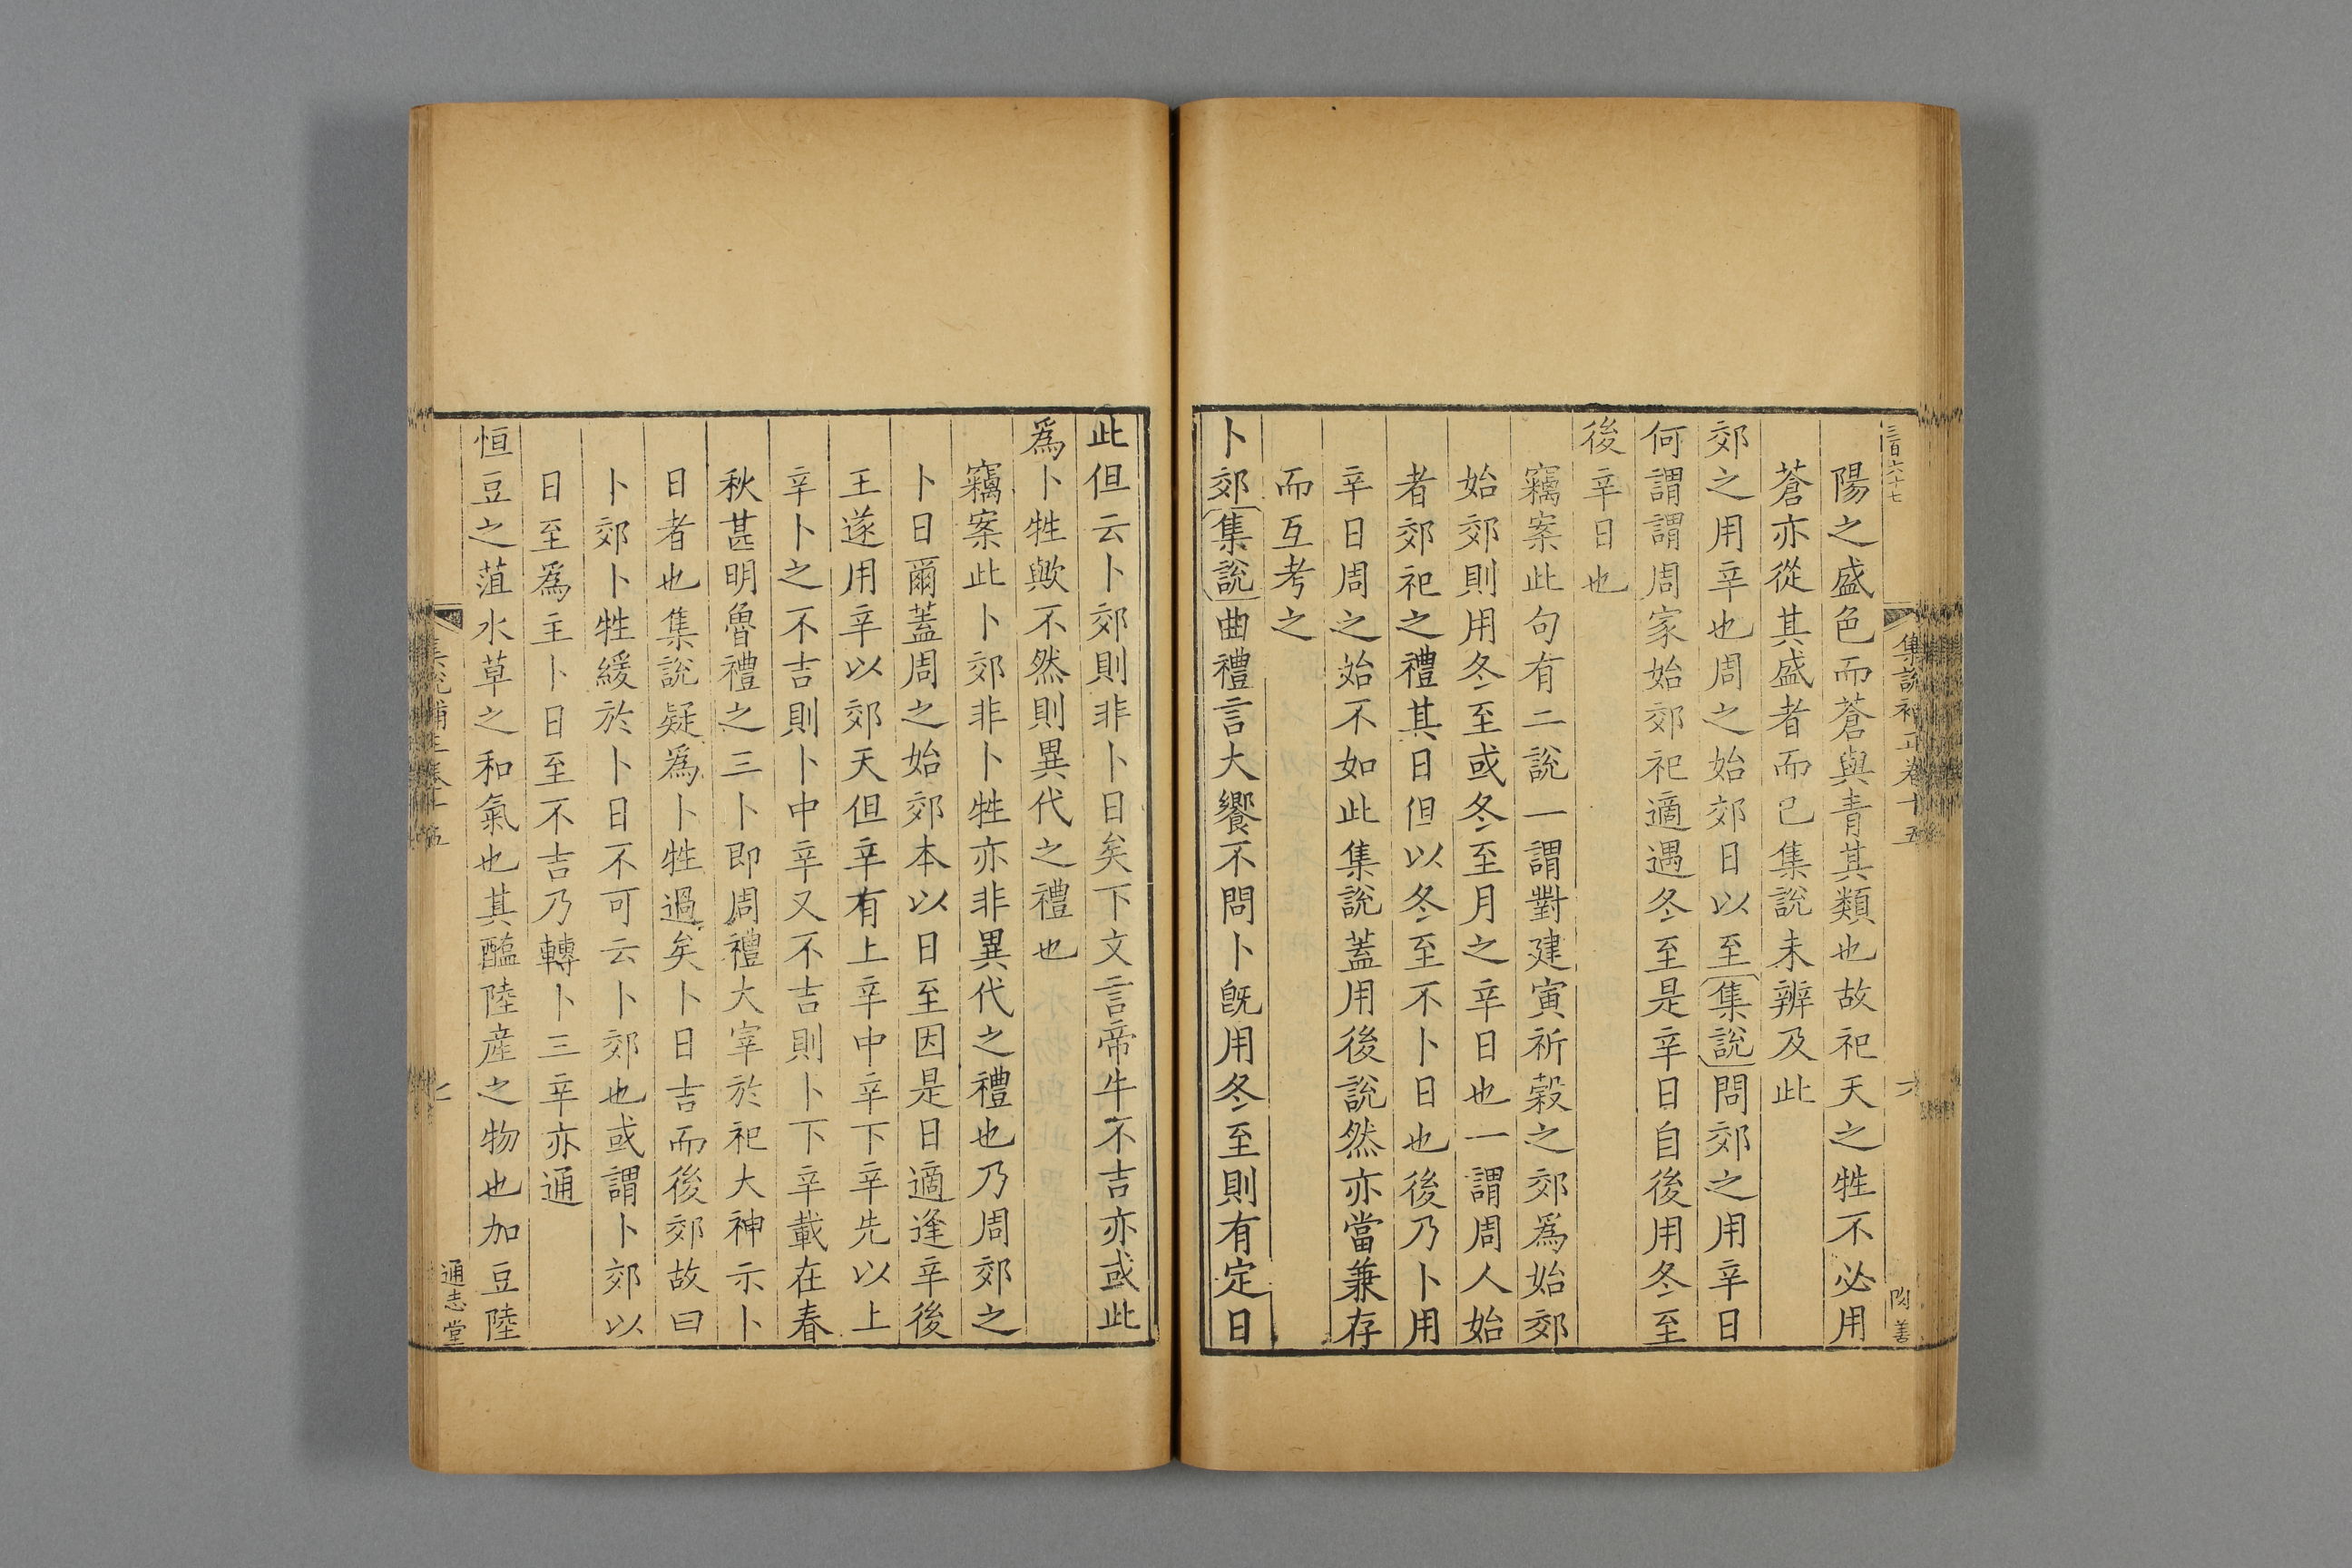 三百六十七
集說補正卷十五
六
閃善
陽之盛色而蒼與青其類也故祀天之牲不必用
蒼亦從其盛者而已集說未辨及此
郊之用辛也周之始郊日以至集說問郊之用辛日
何謂謂周家始郊祀適遇冬至是辛日自後用冬至
後辛日也
竊案此句有二說一謂對建寅祈穀之郊爲始郊
始郊則用冬至或冬至月之辛日也一謂周人始
者郊祀之禮其日但以冬至不卜日也後乃卜用
辛日周之始不如此集說蓋用後說然亦當兼存
而互考之
卜郊集說曲禮言大饗不問卜旣用冬至則有定日
此但云卜郊則非卜日矣下文言帝牛不吉亦或此
爲卜牲歟不然則異代之禮也
竊案此卜郊非卜牲亦非異代之禮也乃周郊之
卜日爾蓋周之始郊本以日至因是日適逢辛後
王遂用辛以郊天但辛有上辛中辛下辛先以上
辛卜之不吉則卜中辛又不吉則卜下辛載在春
秋甚明魯禮之三卜即周禮大宰於祀大神示卜
日者也集說疑爲卜牲過矣卜日吉而後郊故曰
卜郊卜牲緩於卜日不可云卜郊也或謂卜郊以
日至爲主卜日至不吉乃轉卜三辛亦通
恒豆之菹水草之和氣也其醢陸產之物也加豆陸
集說補正卷十五
七
通志堂